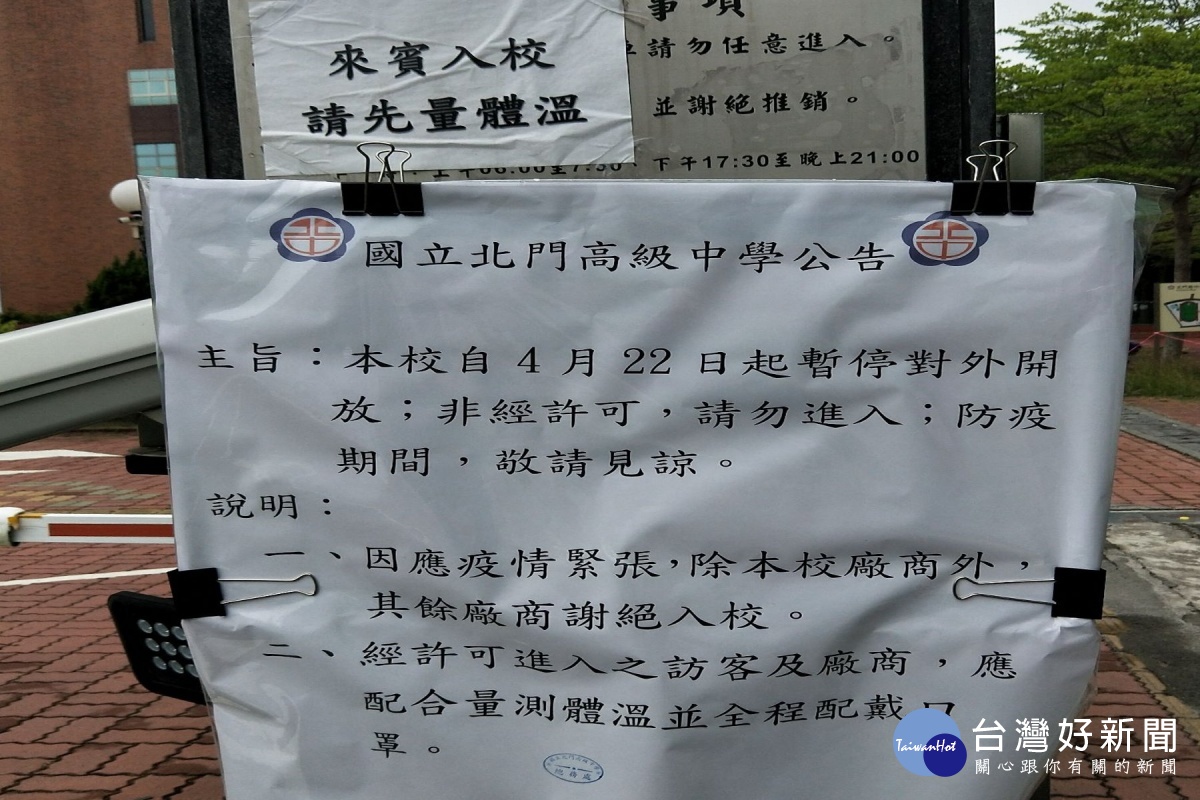 來賓入校
請先量體溫
事項
請勿任意進入。
並謝絕推銷。
下午17:30至晚上21:00
國立北門高級中學公告
主旨：本校自4月22日起暫停對外開
放；非經許可，請勿進入；防疫
期間，敬請見諒。
說明：
一、因應疫情緊張，除本校廠商外，
其餘廠商謝絕入校。
二、經許可進入之訪客及廠商，應
配合量測體溫並全程配戴口
罩。
總務處
TaiwanHot
台灣好新聞
關心跟你有關的新聞